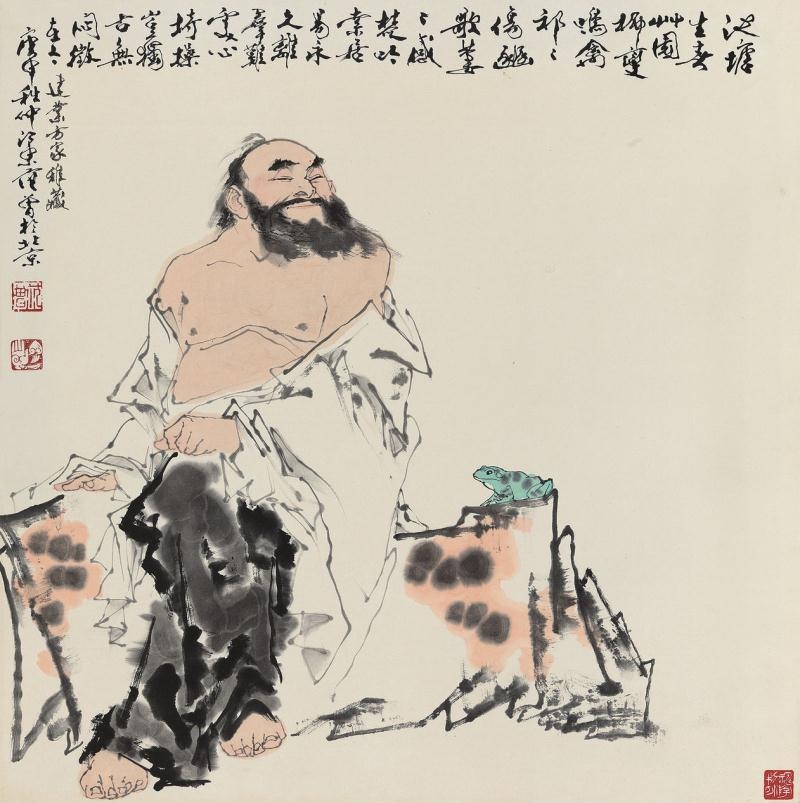 池塘
生春
艸園
柳變
鳴禽
祁〻
傷豳
歌萋
〻感
楚吟
索居
易永
久離
羣難
處心
持操
豈獨
古無
悶徵
在今 建業方家雅藏
庚申秋仲江東范曾於北京
范曾